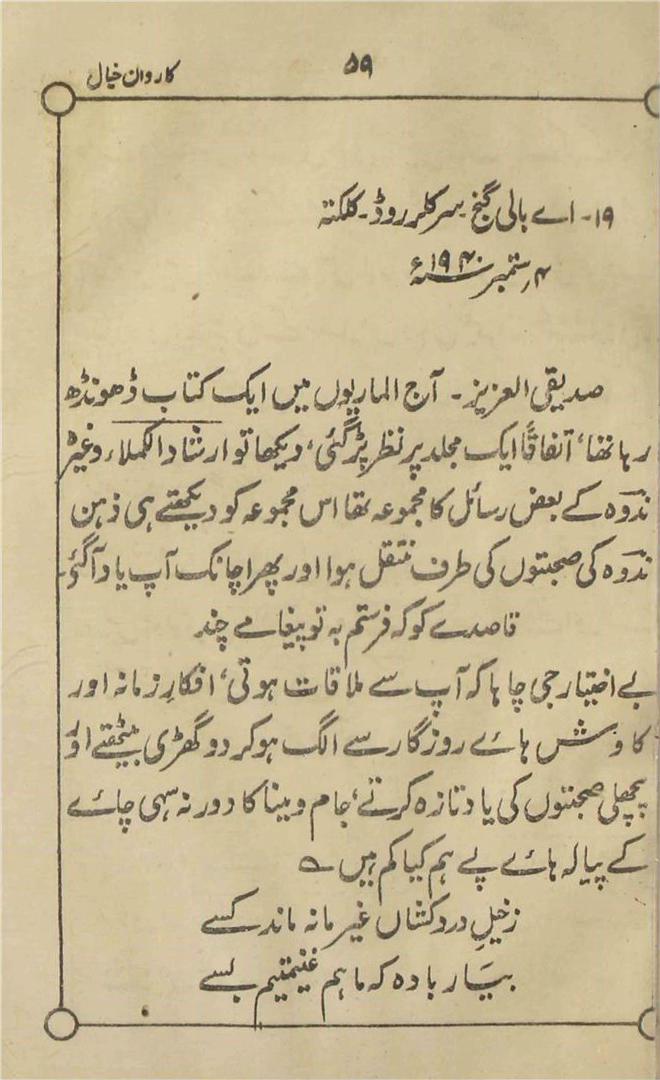 کاروان خیال
۵۹
۱۹- اے بالی گنج سرکلر روڈ - کلکتہ
۴ ستمبر ۱۹۴۰ء
صدیقی العزیز - آج الماریوں میں ایک کتاب ڈھونڈھ
رہا تھا، اتفاقاً ایک مجلد پر نظر پڑ گئی، دیکھا تو ارشاد الکملاء وغیرہ
ندوہ کے بعض رسائل کا مجموعہ تھا اس مجموعہ کو دیکھتے ہی ذہن
ندوہ کی صحبتوں کی طرف منتقل ہوا اور پھر اچانک آپ یاد آگئے۔
قاصدے کو کہ فرستم بہ تو پیغامے چند
بے اختیار جی چاہا کہ آپ سے ملاقات ہوتی، افکارِ زمانہ اور
کاوش ہائے روزگار سے الگ ہوکر دو گھڑی بیٹھتے اور
پچھلی صحبتوں کی یاد تازہ کرتے، جام و مینا کا دور نہ سہی چائے
کے پیالہ ہائے پے ہم کیا کم ہیں ؎
زخیلِ درد کشاں غیر ما نہ ماند کسے
بیار بادہ کہ ما ہم غنیمتیم بسے